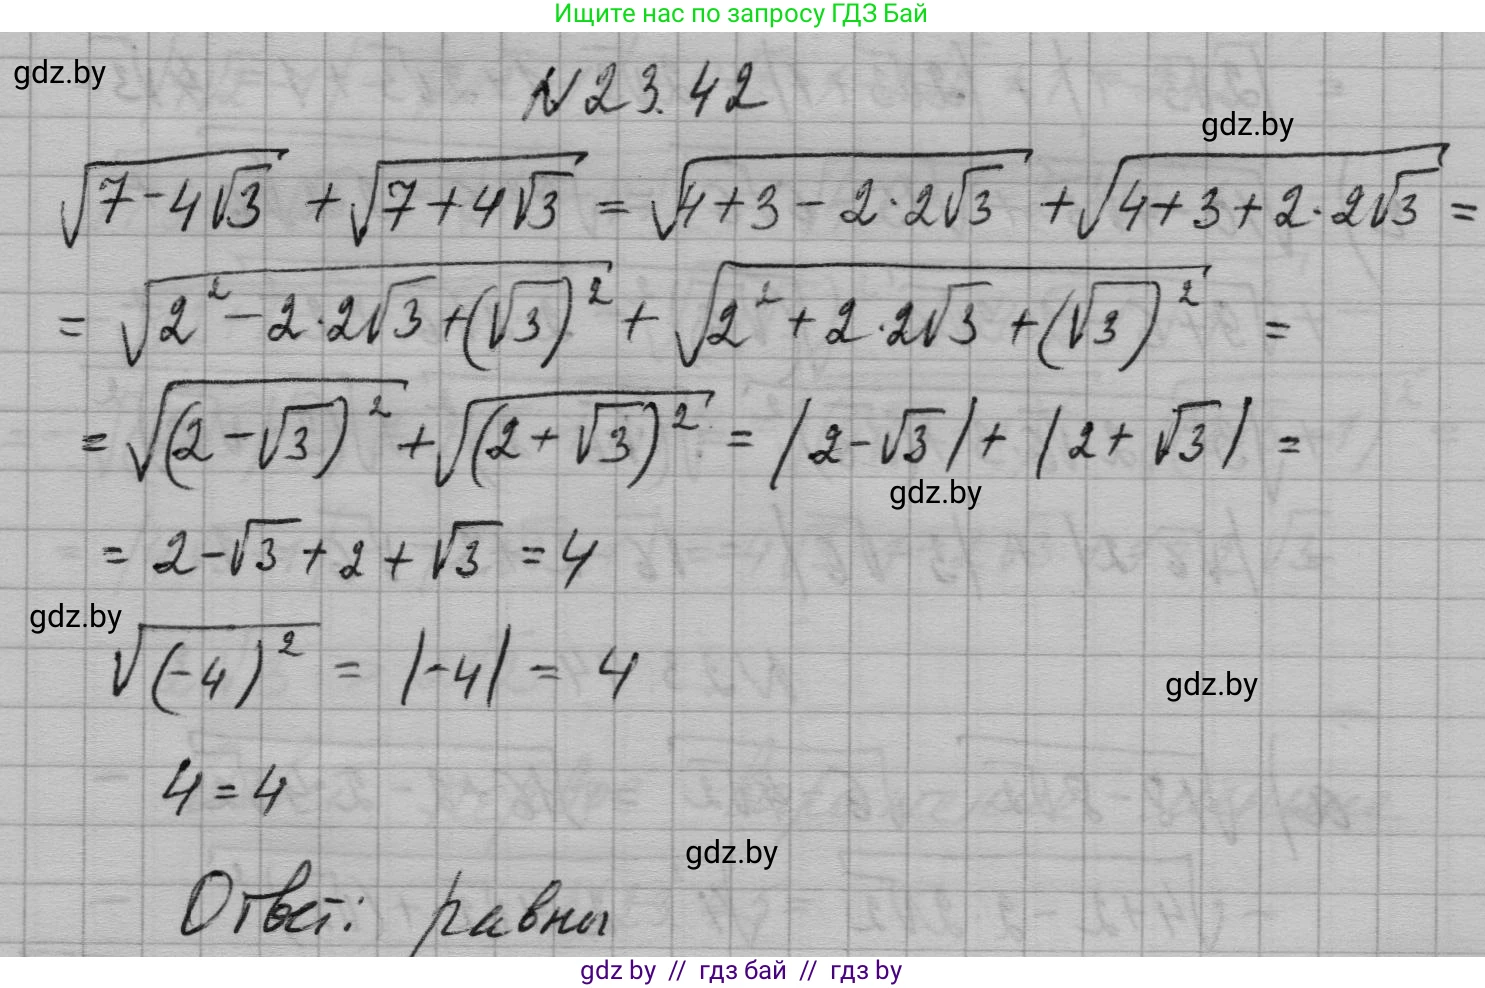 Ищите нас по запросу ГДЗ Бай
gdz.by
N 23.42
gdz.by
√(7-4√3) + √(7+4√3) = √(4+3-2·2√3) + √(4+3+2·2√3) =
= √(2²-2·2√3+(√3)²) + √(2²+2·2√3+(√3)²) =
= √((2-√3)²) + √((2+√3)²) = |2-√3| + |2+√3| =
gdz.by
= 2-√3+2+√3 = 4
gdz.by
√((-4)²) = |-4| = 4
gdz.by
4 = 4
gdz.by
Ответ: равны
gdz by // гдз бай // гдз by